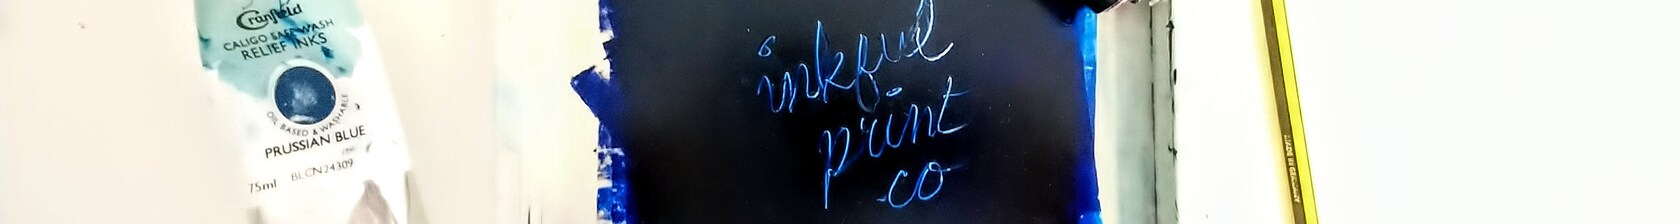 Cranfield
CALIGO SAFE WASH
RELIEF INKS
OIL BASED & WASHABLE
PRUSSIAN BLUE
75ml BLCN24309
inkful
print
.co